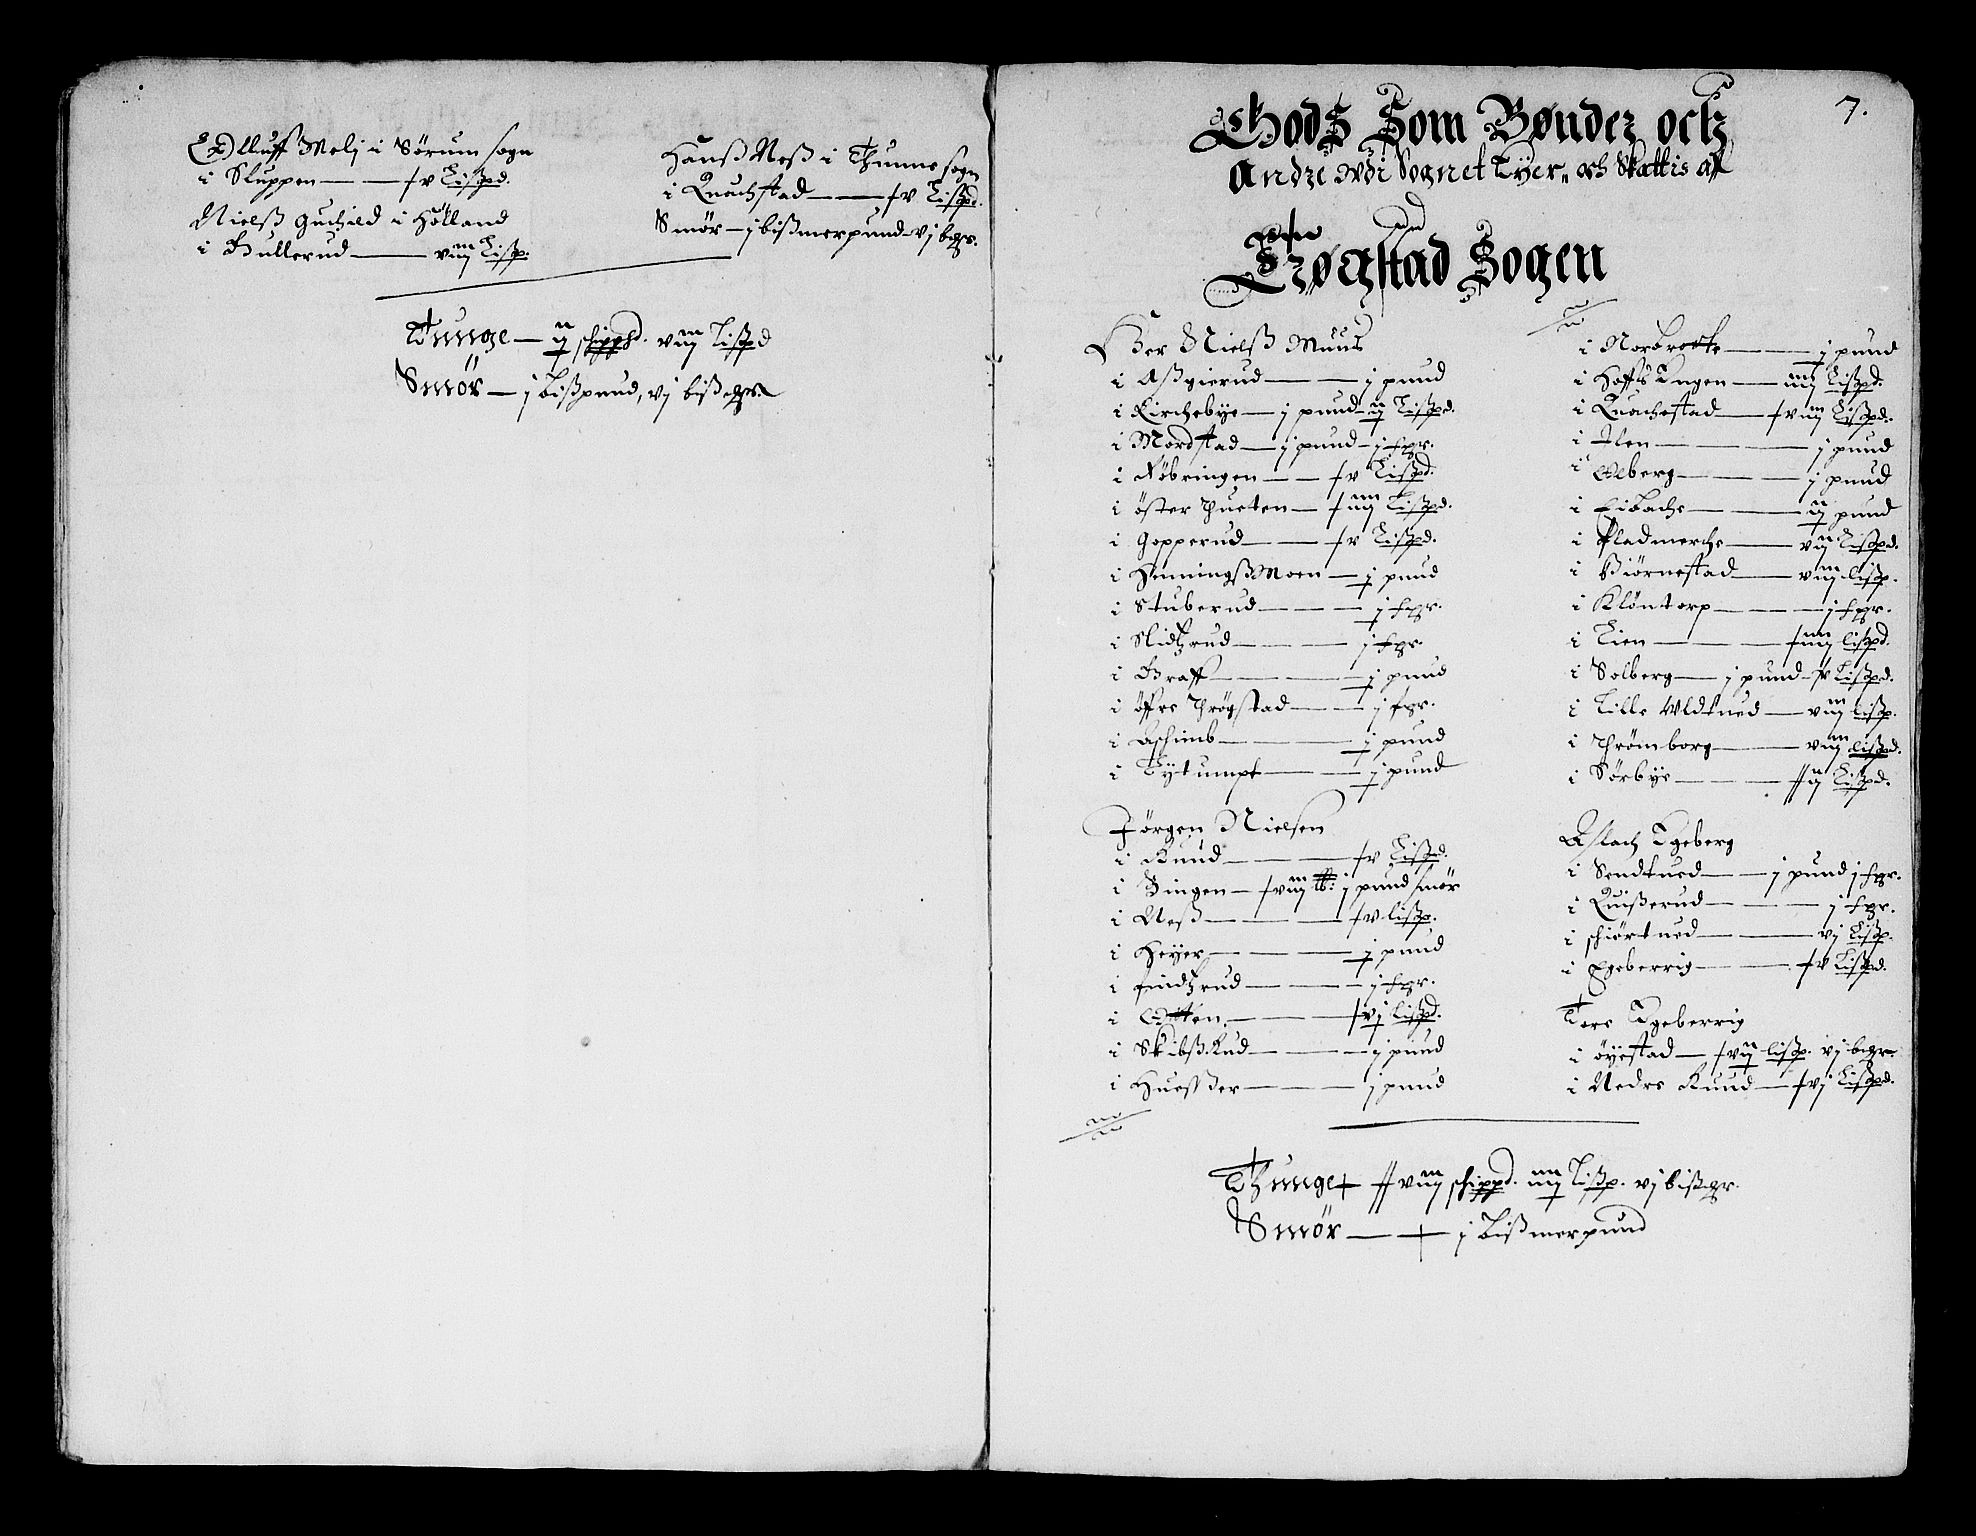 Olluff Melj i Sörum sogn
i Sluppen — — ƒv Lißpd.
Nielß guchild i Hölland
i Bullerud — viij Lißp.
Hanß Neß i Thunne sogn
i Quachstad — — ƒv Lißpd.
Smör — j bißmerpund — vj bgr.
Tunge — ij schippd. viij Lißpd
Smör — j bißpund, vj bißgr.
7.
Gods Som Bønder ock
Andre vdi Sognet Eyer, och Skattis aff
Trøgstad Sogen
Her Nielß Muus
i Aßgierud — — j pund
i Kirchebye — j pund — ij Lißpd.
i Mordstad — j pund — j fgr.
i Röbringen — — ƒv Lißpd.
i öster Thueten — ƒiiij Lißpd.
i Gopperud — — ƒv Lißpd.
i HenningßMoen — j pund
i Stuberud — — — j fgr.
i Slidtzrud — — — j fgr
i Graff — — — j pund
i öffre Thrögstad — — j fgr.
i Aschimb — — — j pund
i Tytumpt — — — j pund
Jörgen Nielsen
i Ruud — — — ƒv Lißpd.
i Bingen — ƒviij lb: j pund smör
i Neß — — — ƒv lißp.
i Heyer — — — j pund
i findtzrud — — — j fgr.
i Otten — — — ƒvj lißpd.
i Skibß.Rud — — — j pund
i Huesßer — — — j pund
i Norbrote — — — j pund
i Hoffs Engen — iiij Lißpd.
i Quachestad — ƒviij Lißpd.
i Ilen — — — j pund
i Olberg — — — j pund
i Eibache — — — ij pund
i Fladmerche — — viij Lißpd.
i Biörnestad — — viij lißp.
i Klöntorp — — — j fgr.
i Lien — — — ƒiiij lißpd.
i Solberg — j pund — ƒv Lißpd.
i Lille Vldtued — viij lißp.
i Thrömborg — — viij lißpd.
i Sörbye — — — ƒƒij Lißpd.
Aslach Egeberg
i Sendtued — — j pund j fgr.
i Quißerud — — — j fgr.
i schiörtued — — — vj Lißp.
i Egeberrig — — — ƒv Lißpd.
Tore Egeberrig
i öyestad — ƒvij lißp. vj bgr.
i Nedre Ruud — ƒvj Lißpd.
Thunge ƒƒviij schippd. iiij Lißp. vj bißgr.
Smör — — j Bißmerpund